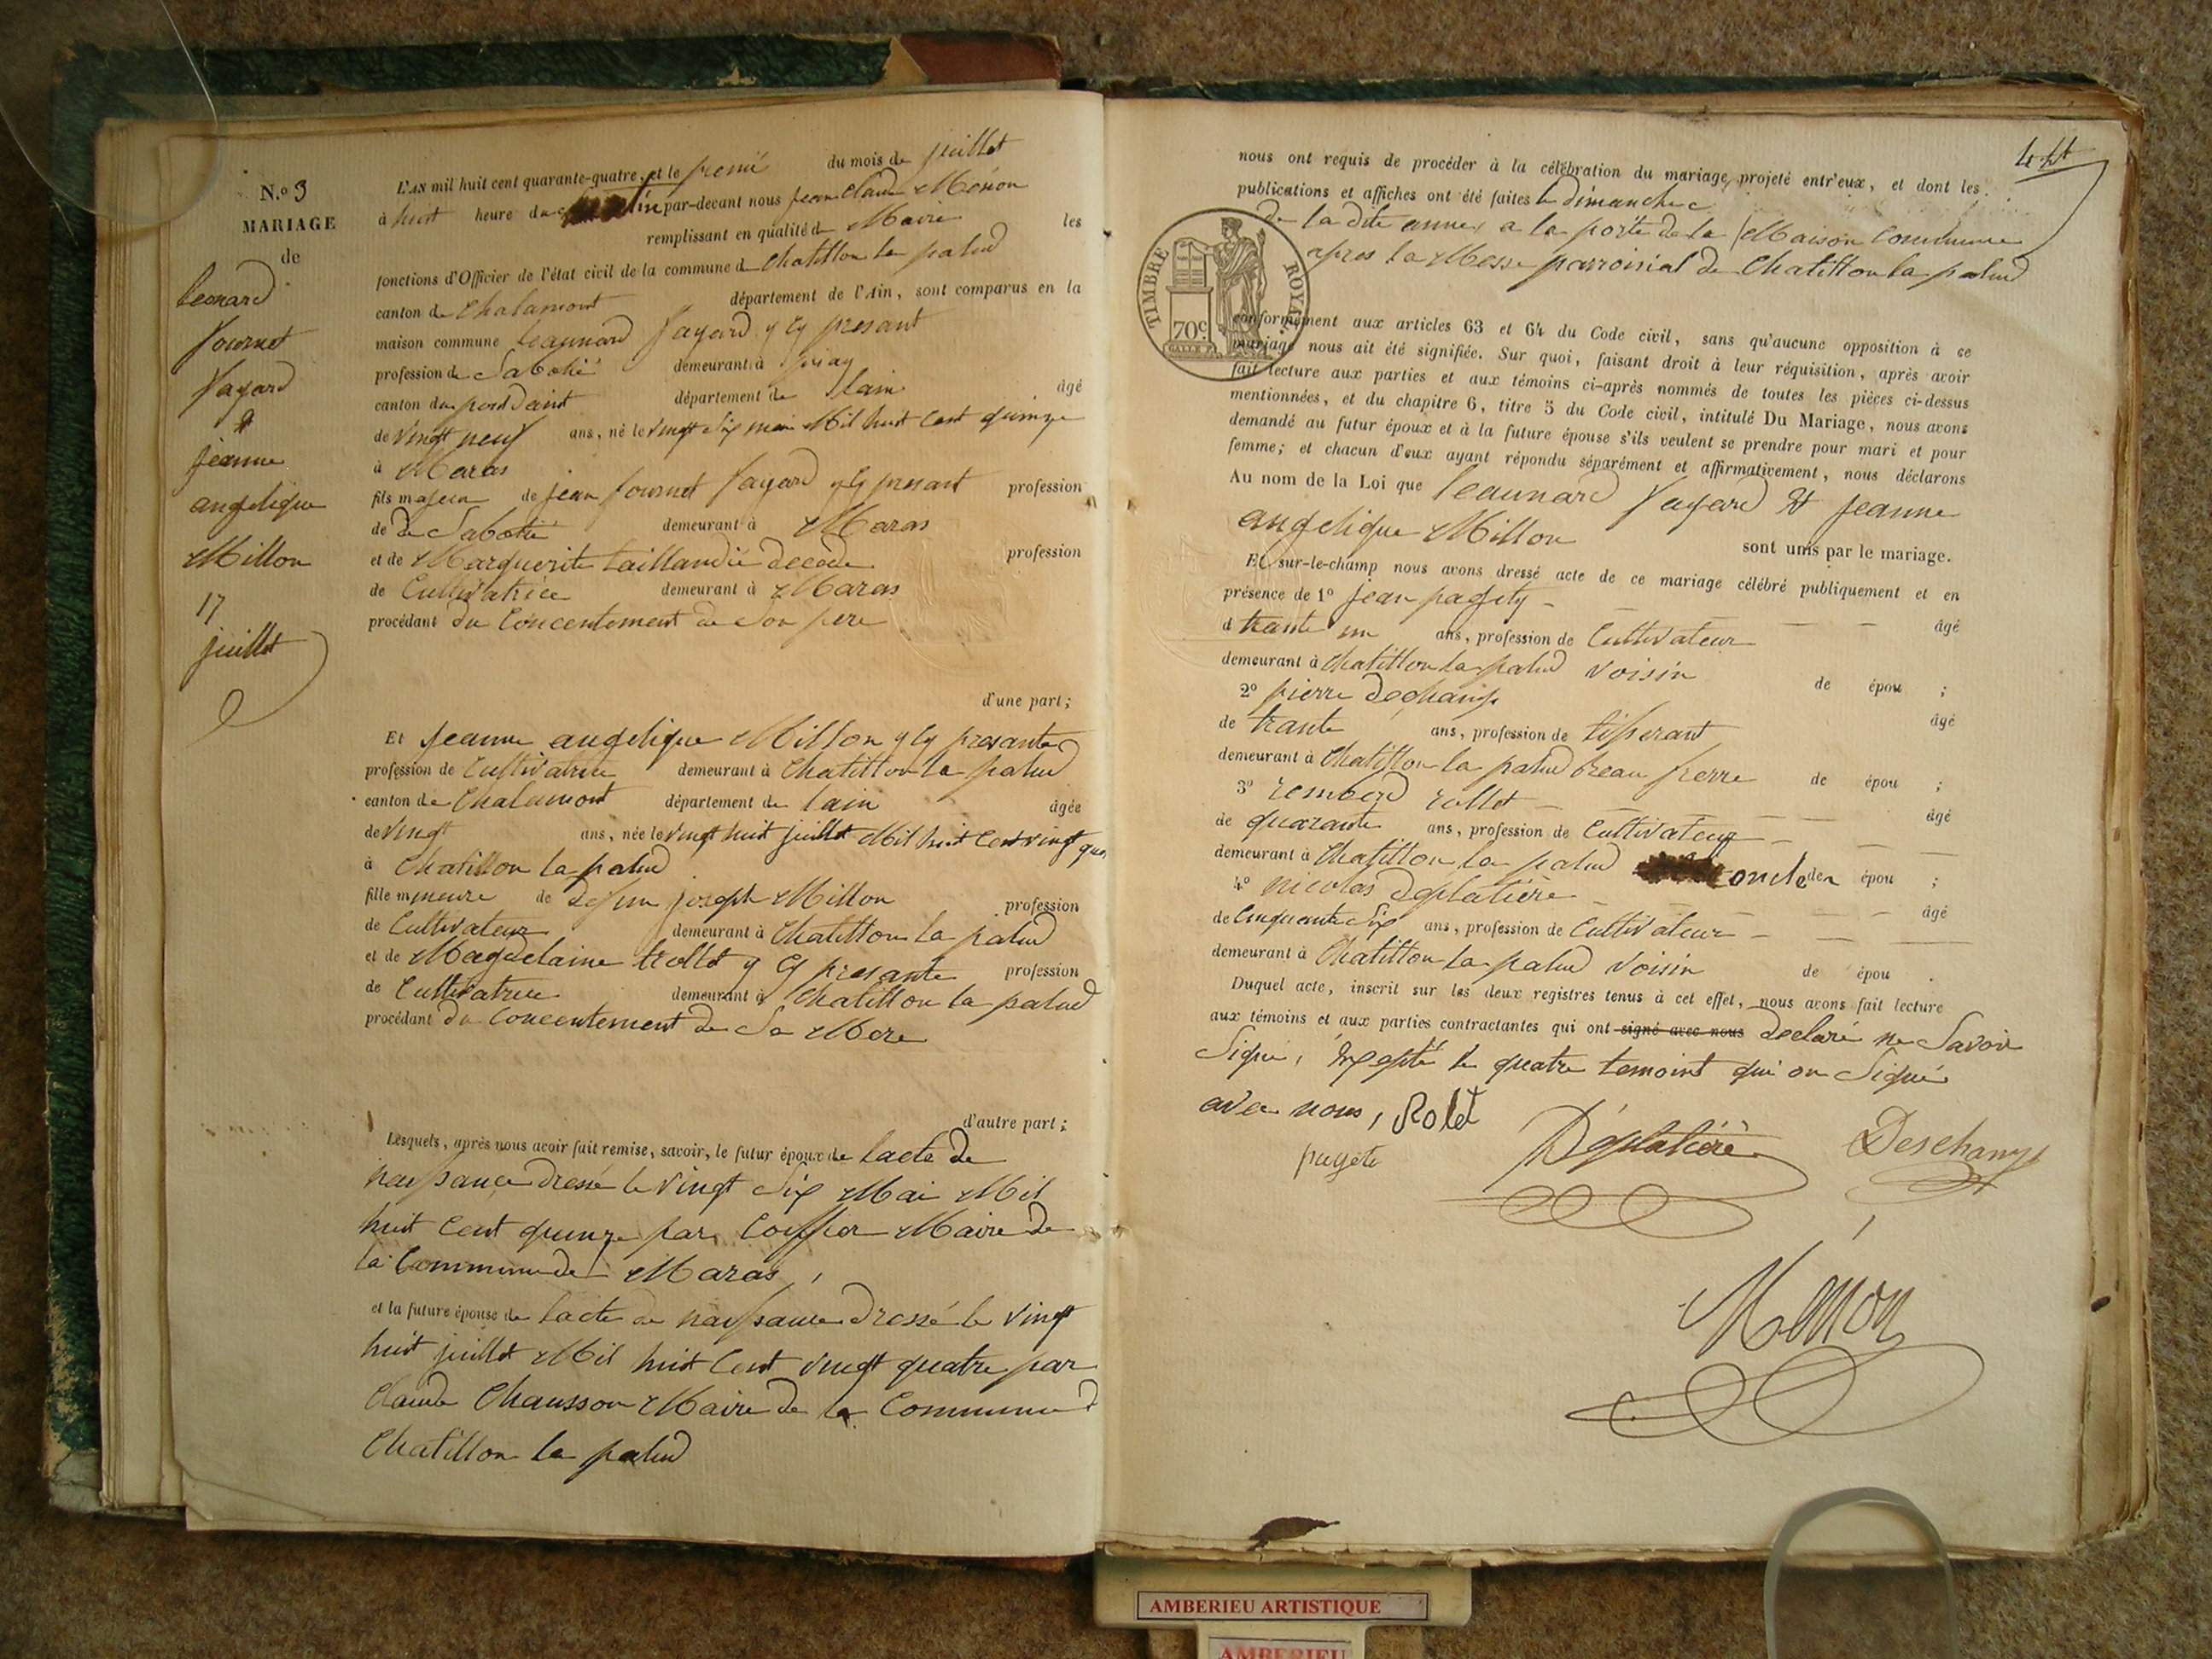 N.o 9
MARIAGE
de
leonard
fournet
fayard
&
jeanne
angelique
Millon
17
juillet
L'AN mil huit cent quarante-quatre, et le premié du mois de juillet
à huit heure du par-devant nous jean Claude Menon
remplissant en qualité de Maire les
fonctions d'Officier de l'état civil de la commune de Chatillon la palud
canton de Chalamont département de l'Ain, sont comparus en la
maison commune leaunard fayard y cy presant
profession de Sabotié demeurant à priay
canton du pont dain département de lain âgé
de vingt neuf ans, né le vingt Six mai Mil huit Cent quinze
à Maras
fils majeur de jean fournet fayard y cy presant profession
de de Sabotié demeurant à Maras
et de Marguerite taillandié decede profession
de Cultivatrice demeurant à Maras
procédant du Concentement de Son pere
d'une part;
Et jeanne angelique Millon y cy presante
profession de Cultivatrice demeurant à Chatillon la palud
canton de Chalamont département de lain âgée
de vingt ans, née le vingt huit juillet Mil huit Cent vingt qua
à Chatillon la palud
fille mineure de defun joseph Millon profession
de Cultivateur demeurant à Chatillon la palud
et de Magdelaine trollet y cy presante profession
de Cultivatrice demeurant à Chatillon la palud
procédant du Concentement de Sa Mere
d'autre part;
Lesquels, après nous avoir fait remise, savoir, le futur époux de lacte de
naissance dressé le vingt Six Mai Mil
huit Cent quinze par Coiffier Maire de
la Commune de Maras,
et la future épouse de lacte de naissance dressé le vingt
huit juillet Mil huit Cent vingt quatre par
Claude Chausson Maire de la Commune d
Chatillon la palud
nous ont requis de procéder à la célébration du mariage projeté entr'eux, et dont les
publications et affiches ont été faites le dimanche
de la dite année a la porte de la Maison Commune
apres la Messe parroisial de Chatillon la palud
TIMBRE ROYAL
70c
conformément aux articles 63 et 64 du Code civil, sans qu'aucune opposition à ce
mariage nous ait été signifiée. Sur quoi, faisant droit à leur réquisition, après avoir
fait lecture aux parties et aux témoins ci-après nommés de toutes les pièces ci-dessus
mentionnées, et du chapitre 6, titre 5 du Code civil, intitulé Du Mariage, nous avons
demandé au futur époux et à la future épouse s'ils veulent se prendre pour mari et pour
femme; et chacun d'eux ayant répondu séparément et affirmativement, nous déclarons
Au nom de la Loi que leaunard fayard & jeanne
angelique Millon sont unis par le mariage.
Et sur-le-champ nous avons dressé acte de ce mariage célébré publiquement et en
présence de 1o jean
d trante un ans, profession de Cultivateur âgé
demeurant à Chatillon la palud voisin de épou ;
2o pierre dechamp
de trante ans, profession de tisserant âgé
demeurant à Chatillon la palud beau frerre de épou ;
3o rollet
de quarante ans, profession de Cultivateur âgé
demeurant à Chatillon la palud oncle de épou ;
4o nicolas deplatière
de Cinquante Six ans, profession de Cultivateur âgé
demeurant à Chatillon la palud voisin de épou .
Duquel acte, inscrit sur les deux registres tenus à cet effet, nous avons fait lecture
aux témoins et aux parties contractantes qui ont signé avec nous declaré ne Savoir
Signé, le quatre temoint qui on Signé
avec nous, Rolet
pagete Déplatière Deschamp
Menon
AMBERIEU ARTISTIQUE
AMBERIEU